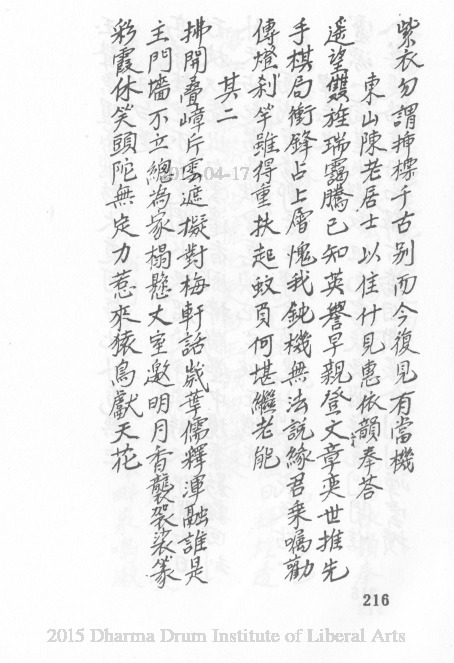 紫衣勿謂抻橾千古別而今復見有當機
東山陳老居士以佳什見惠依韻奉答
遙望雙旌瑞靄騰已知英譽早親登文章奕世推先
手棋局衝鋒占上層愧我鈍機無法說緣君乗囑勸
傳燈刹竿雖得重扶起蚊負何堪繼老能
其二
拂開疊嶂片雲遮擬對梅軒話歲華儒釋渾融誰是
主門墻不立總為家榻懸丈室邀明月香襲袈裟篆
彩霞休笑頭陀無定力惹來猿鳥獻天花
216
2015 Dharma Drum Institute of Liberal Arts